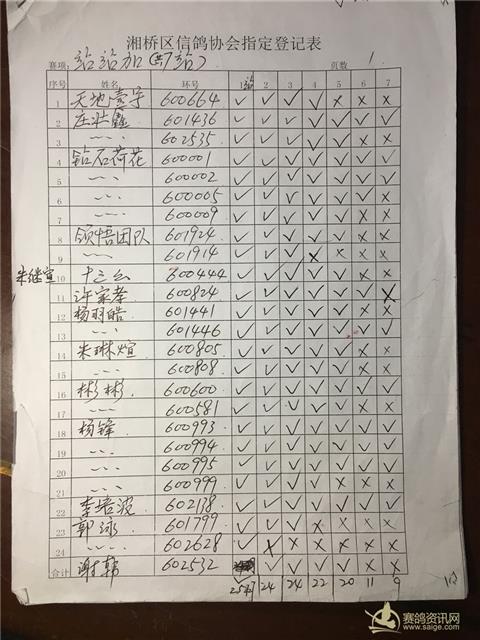 湘桥区信鸽协会指定登记表
赛项: 站站加(7站) 页数 1
序号 姓名 环号 1站 2 3 4 5 6 7
1 天地壹宇 600664 ✓ ✓ ✓ ✓ × × ×
2 庄洪鑫 601436 ✓ ✓ ✓ ✓ ✓ ✓ ✓
3 〃 602535 ✓ ✓ ✓ ✓ ✓ × ×
4 钻石荷花 600001 ✓ ✓ ✓ ✓ ✓ ✓ ✓
5 〃 600002 ✓ ✓ ✓ ✓ ✓ × ×
6 〃 600005 ✓ ✓ ✓ ✓ ✓ ✓ ×
7 〃 600009 ✓ ✓ ✓ ✓ ✓ × ×
8 领悟团队 601924 ✓ ✓ ✓ ✓ ✓ × ×
9 〃 601914 ✓ ✓ ✓ × × × ×
朱继宣 10 十三么 600444 ✓ ✓ ✓ ✓ ✓ × ×
11 许家孝 600824 ✓ ✓ ✓ ✓ ✓ ✓ ×
12 杨羽皓 601441 ✓ ✓ ✓ ✓ ✓ × ×
13 〃 601446 ✓ ✓ ✓ ✓ ✓ ✓ ✓
14 朱琳煊 600805 ✓ ✓ ✓ ✓ ✓ × ×
15 〃 600808 ✓ ✓ ✓ ✓ ✓ × ×
16 彬彬 600600 ✓ ✓ ✓ ✓ ✓ ✓ ✓
17 〃 600581 ✓ ✓ ✓ ✓ ✓ × ×
18 杨锋 600993 ✓ ✓ ✓ ✓ ✓ ✓ ✓
19 〃 600994 ✓ ✓ ✓ ✓ ✓ ✓ ✓
20 〃 600995 ✓ ✓ ✓ ✓ ✓ ✓ ✓
21 〃 600999 ✓ ✓ ✓ ✓ ✓ × ×
22 李培波 602138 ✓ ✓ ✓ ✓ ✓ ✓ ✓
23 郭泳 601799 ✓ ✓ ✓ × × × ×
24 〃 602628 ✓ × × × × × ×
合计 谢韩 602532 ✓ ✓ ✓ ✓ × ×
25 24 24 22 20 11 9
赛鸽资讯网
www.saige.com